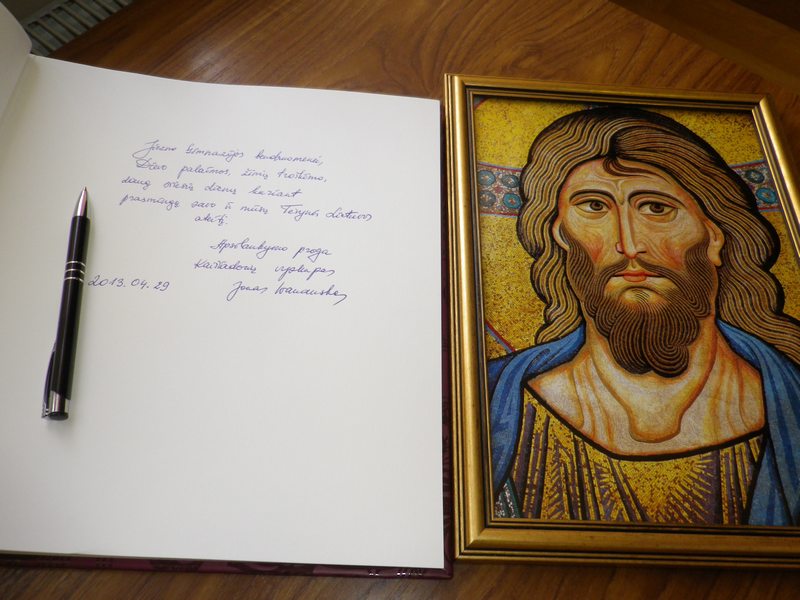 Jūsų gimnazijos bendruomenei,
Dievo palaimos, žinių troškimo,
daug šviesių dienų kuriant
prasmingą savo ir mūsų Tėvynės Lietuvos
ateitį.
Apsilankymo proga
Kaišiadorių vyskupas
2013.04.29 Jonas Ivanauskas